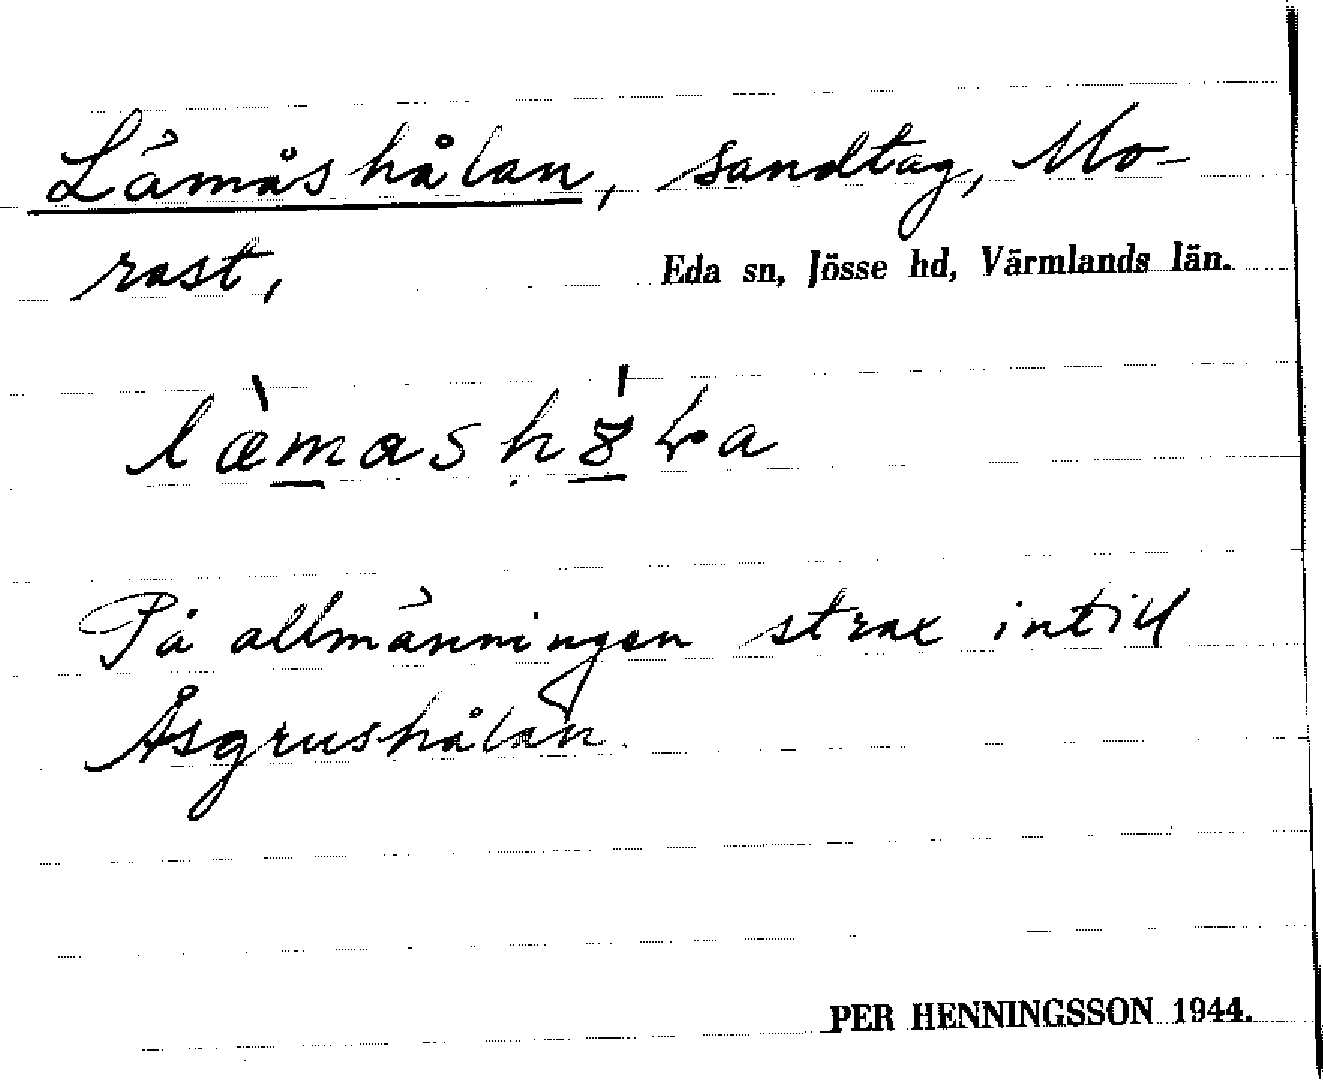 Lämåshålan, sandtag, Mo-
rast,
Eda sn, Jösse hd, Värmlands län.
På allmänningen strax intill
Åsgrushålan.
PER HENNINGSSON 1944.